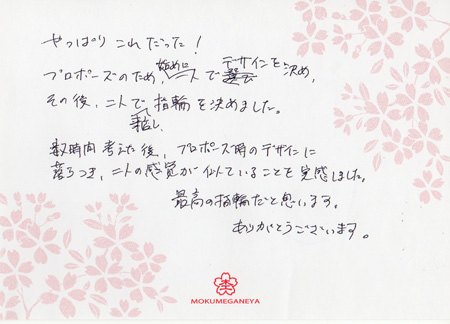 やっぱり これだった!
プロポーズのため、始めに 人で デザインを決め、
その後、二人で探し 指輪を決めました。
数時間 考えた後、プロポーズ時のデザインに
落ちつき、二人の感覚が似ていることを実感しました。
最高の指輪だと思います。
ありがとうございます。
MOKUMEGANEYA